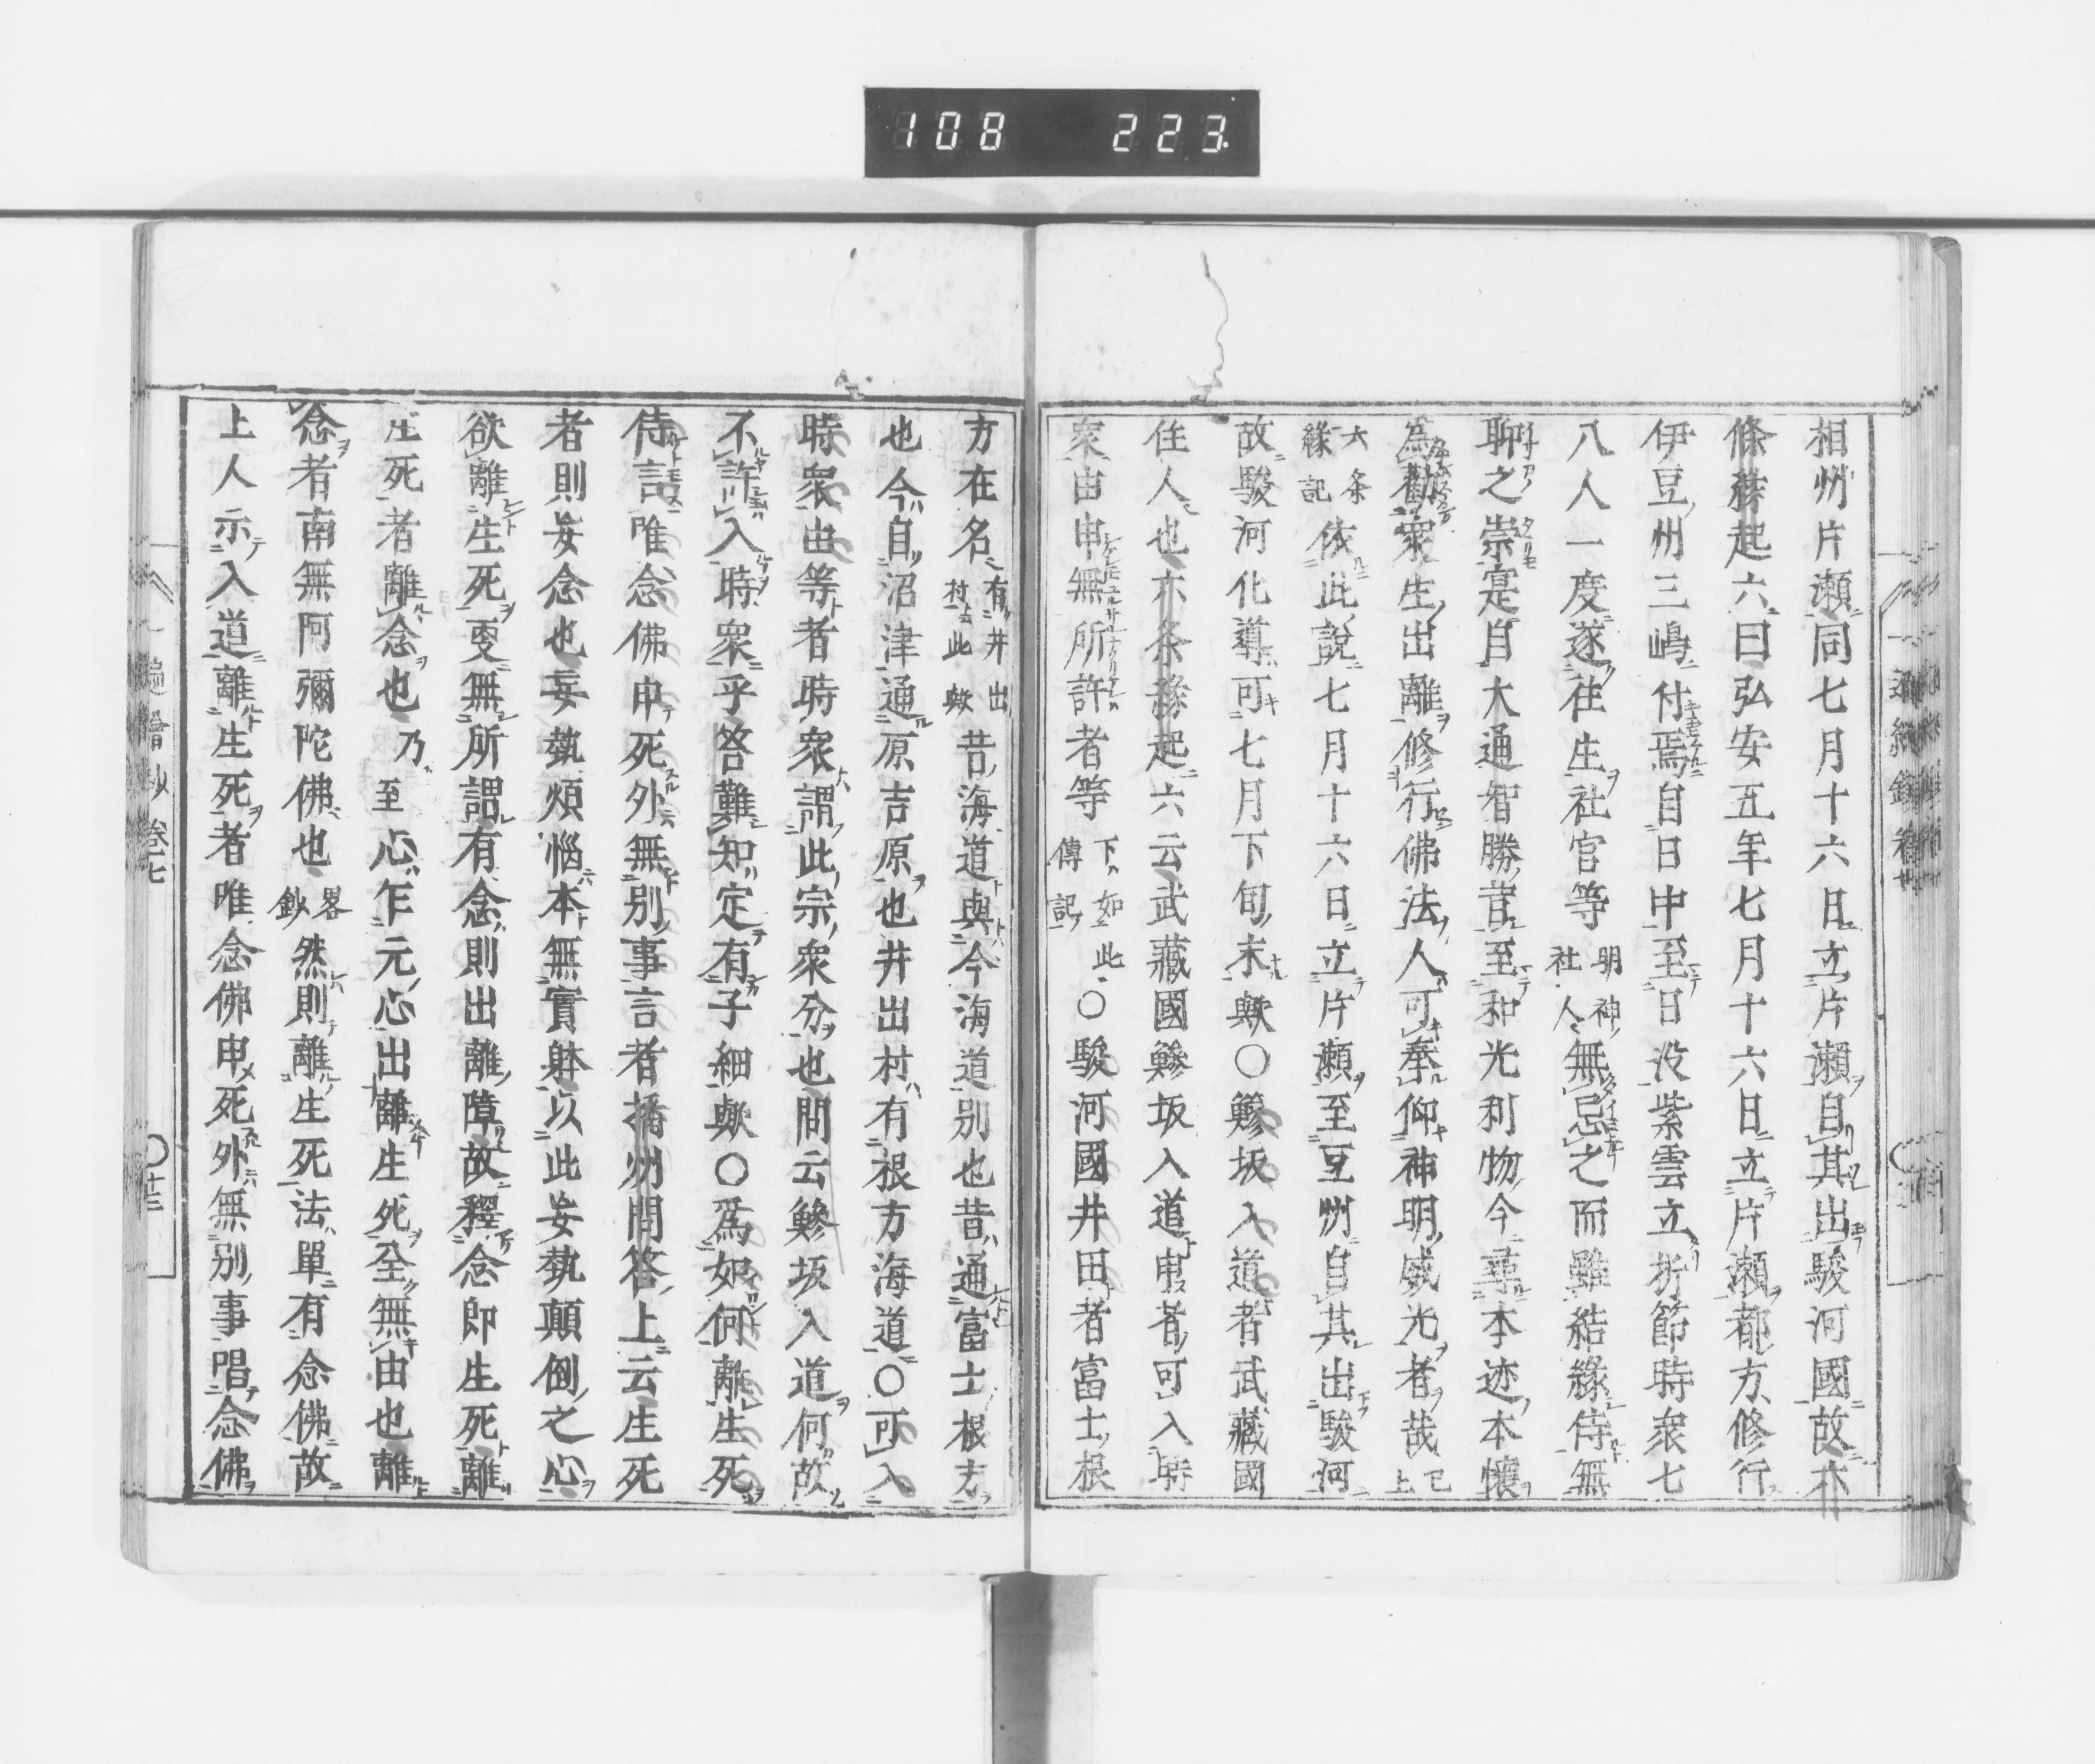 108 223
相州片瀬同七月十六日立片瀬自其出駿河國故六
條縁起六曰弘安五年七月十六日立片瀬都方修行
伊豆州三嶋付焉自日中至日没紫雲立折節時衆七
八人一度遂往生社官等明神社人無忌之而雖結縁侍無
聊之崇寔自大通智勝昔至和光利物今尋本迹本懷
爲勸衆生出離修行佛法人可奉仰神明威光者哉已上
六条縁記依此說七月十六日立片瀬至豆州自其出駿河
故駿河化導可七月下旬末歟〇鰺坂入道者武藏國
住人也六条縁起六云武藏國鰺坂入道申者可入時
衆由申無所許者等下如此傳記〇駿河國井田者富士根
方在名有井出村此歟昔海道與今海道別也昔通富士根方
也今自沼津通原吉原也井出村有根方海道〇可入
時衆由等者時衆謂此宗衆分也問云鰺坂入道何故
不許入時衆乎答難知定有子細歟〇爲如何離生死
侍話唯念佛申死外無別事言者播州問答上云生死
者則妄念也妄執煩惱本無實躰以此妄執顛倒之心
欲離生死更無所謂有念則出離障故釋念即生死離
生死者離念也乃至心乍元心出離生死全無由也離
念者南無阿彌陀佛也畧鈔然則離生死法單有念佛故
上人示入道離生死者唯念佛申死外無別事唱念佛